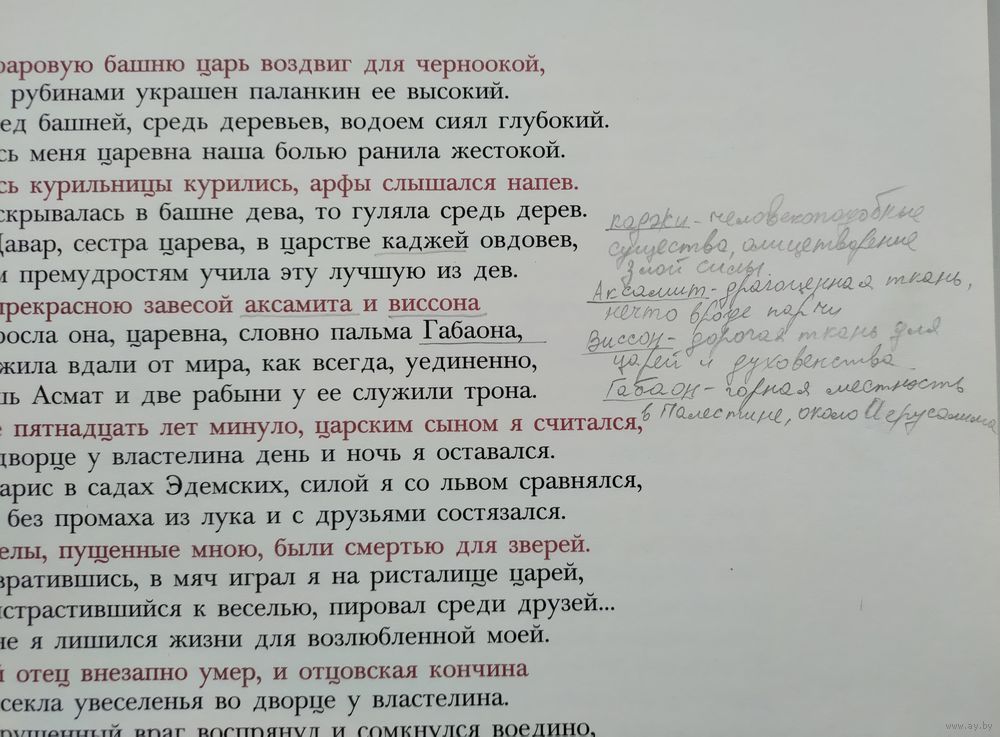 фаровую башню царь воздвиг для черноокой,
рубинами украшен паланкин ее высокий.
ед башней, средь деревьев, водоем сиял глубокий.
сь меня царевна наша болью ранила жестокой.
сь курильницы курились, арфы слышался напев.
скрывалась в башне дева, то гуляла средь дерев.
Давар, сестра царева, в царстве каджей овдовев,
м премудростям учила эту лучшую из дев.
прекрасною завесой аксамита и виссона
росла она, царевна, словно пальма Габаона,
жила вдали от мира, как всегда, уединенно,
шь Асмат и две рабыни у ее служили трона.
е пятнадцать лет минуло, царским сыном я считался,
дворце у властелина день и ночь я оставался.
арис в садах Эдемских, силой я со львом сравнялся,
без промаха из лука и с друзьями состязался.
елы, пущенные мною, были смертью для зверей.
вратившись, в мяч играл я на ристалище царей,
истрастившийся к веселью, пировал среди друзей...
не я лишился жизни для возлюбленной моей.
й отец внезапно умер, и отцовская кончина
секла увеселенья во дворце у властелина.
рушенный враг воспрянул и сомкнулся воедино,
каджи - человекоподобные
существа, олицетворение
злой силы.
Аксамит - драгоценная ткань,
нечто вроде парчи
Виссон - дорогая ткань для
царей и духовенства
Габаон - горная местность
в Палестине, около Иерусалима
www.ay.by